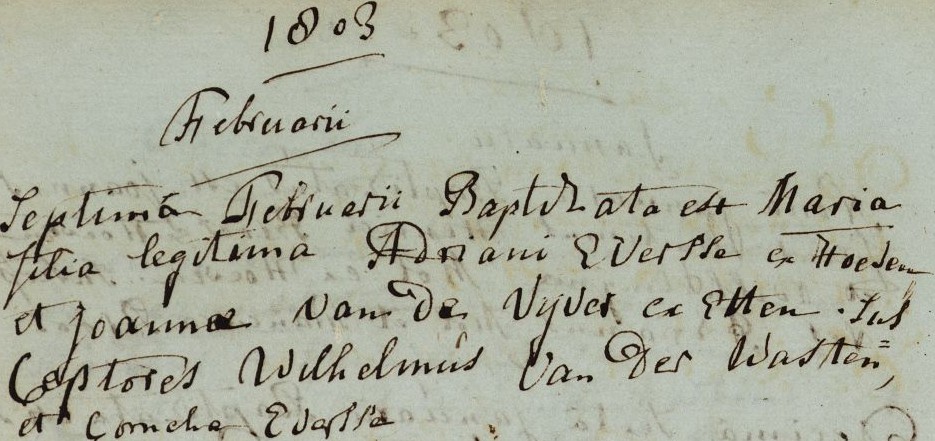 1803
Februarii
Septimâ Februarii Baptizata est Maria
filia legitima Adriani Eversse ex Hoeven
et Joannæ Van De Vyver ex Etten. Sus
Ceptores Wilhelmus Van Der Wasten,
et Cornelia Eversse